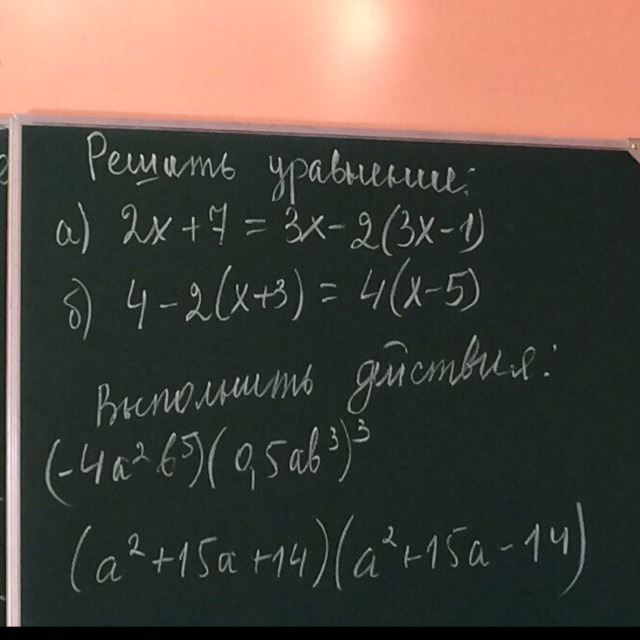 Решить уравнение:
а) 2x+7=3x-2(3x-1)
б) 4-2(x+3)=4(x-5)
Выполнить действия:
(-4a²b⁵)(0,5ab³)³
(a²+15a+14)(a²+15a-14)